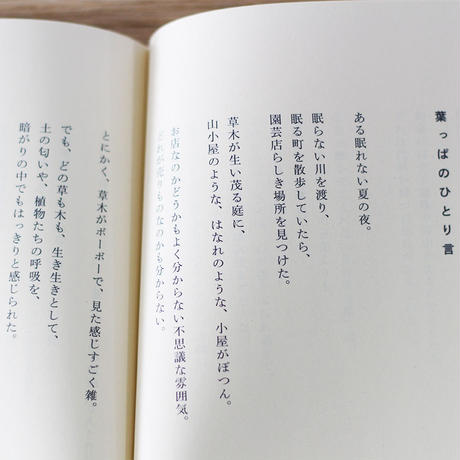 葉っぱのひとり言
ある眠れない夏の夜。
眠らない川を渡り、
眠る町を散歩していたら、
園芸店らしき場所を見つけた。
草木が生い茂る庭に、
山小屋のような、はなれのような、小屋がぽつん。
お店なのかどうかもよく分からない不思議な雰囲気。
どれが売りものなのかも分からない。
とにかく、草木がボーボーで、見た感じすごく雑。
でも、どの草も木も、生き生きとして、
土の匂いや、植物たちの呼吸を、
暗がりの中でもはっきりと感じられた。